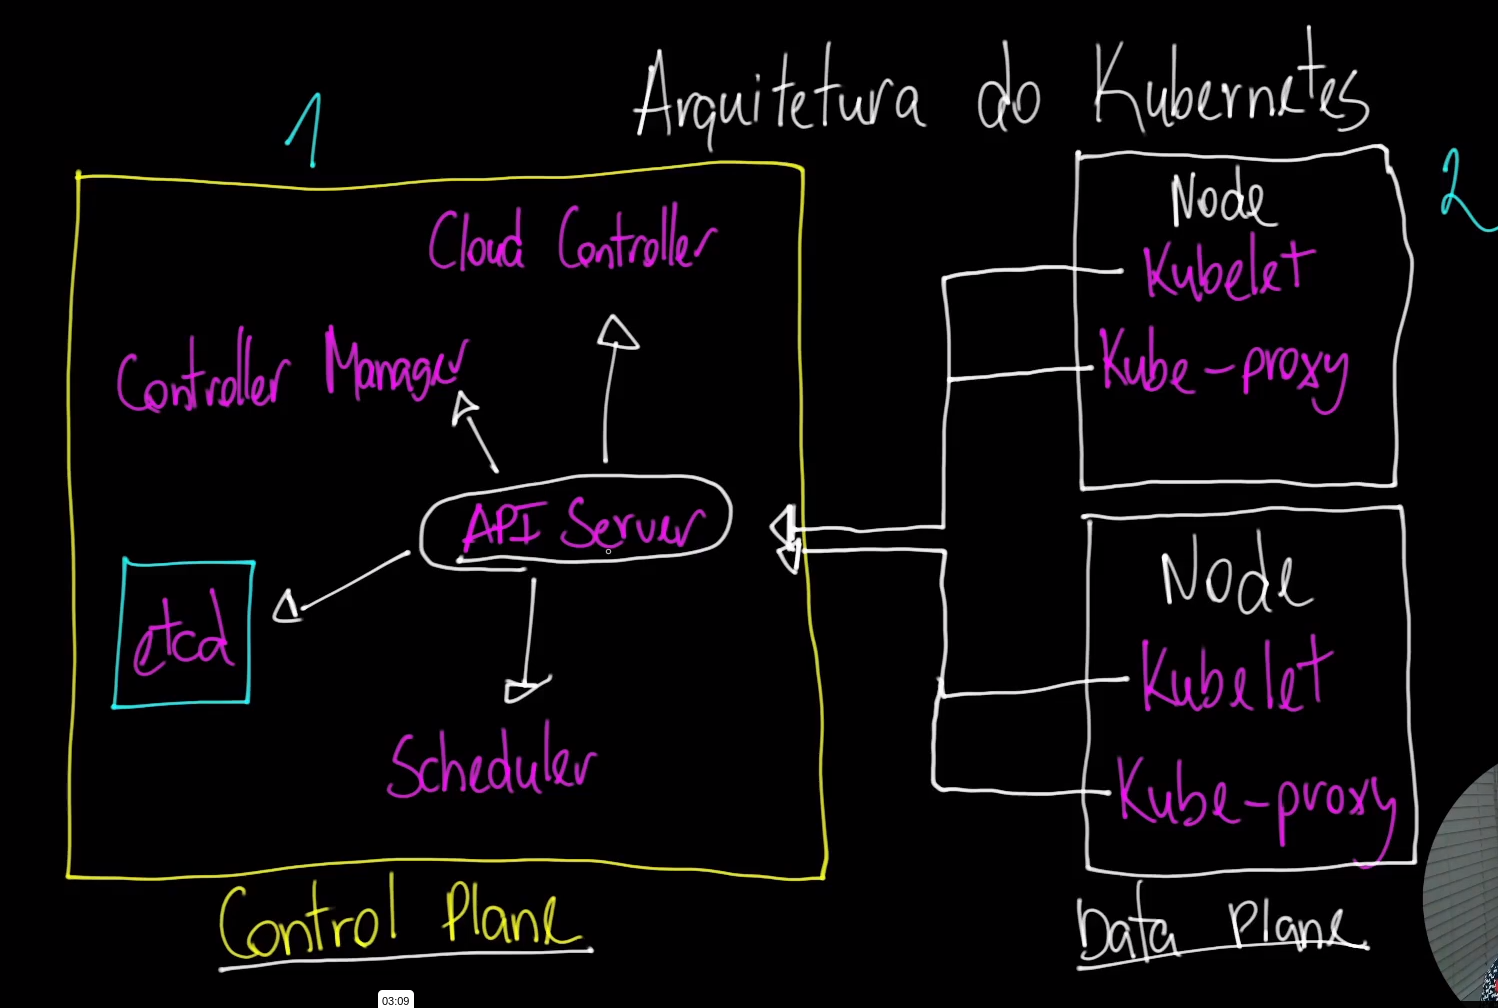 Arquitetura do Kubernetes
1
Cloud Controller
Controller Manager
API Server
etcd
Scheduler
Control Plane
2
Node
Kubelet
Kube-proxy
Node
Kubelet
Kube-proxy
Data Plane
03:09